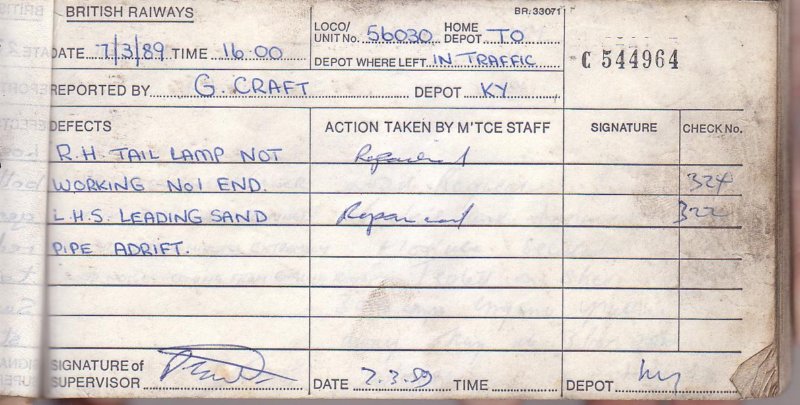 BRITISH RAIWAYS BR. 33071
DATE 7/3/89 TIME 16·00 LOCO/ UNIT No. 56030 HOME DEPOT TO
DEPOT WHERE LEFT IN TRAFFIC
C 544964
REPORTED BY G. CRAFT DEPOT KY
DEFECTS ACTION TAKEN BY M'TCE STAFF SIGNATURE CHECK No.
R.H. TAIL LAMP NOT Repaired
WORKING No1 END. 324
L.H.S. LEADING SAND Repaired 322
PIPE ADRIFT.
SIGNATURE of
SUPERVISOR DATE 7.3.89 TIME DEPOT ky